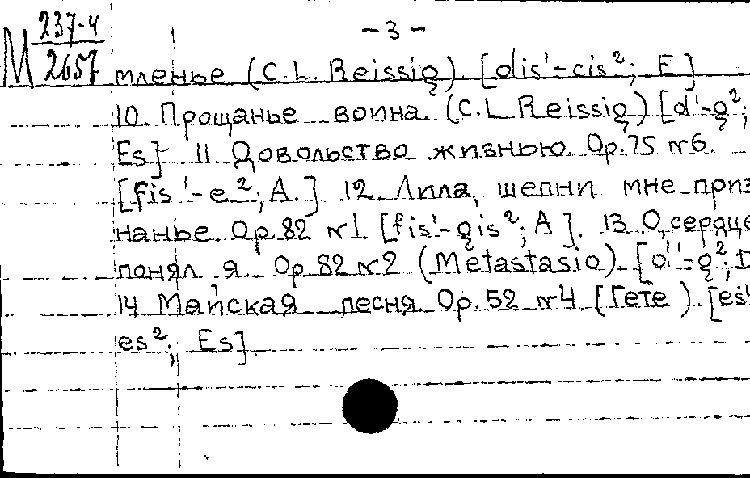 М 237-4
2657
- 3 -
мленье (C.L. Reissig) [dis¹-cis²; E]
10. Прощанье воина. (C.L Reissig) [d¹-g²;
Es] 11 Довольство жизнью. Op.75 №6.
[fis¹-e²; A.] 12. Лила, шепни мне приз
нанье. Op.82 №1 [fis¹-gis²; A]. 13 О, сердце
понял я. Op 82 №2 (Metastasio) [d¹-g²; D
14 Майская песня Op.52 №4 (Гете). [es¹
es²; Es]